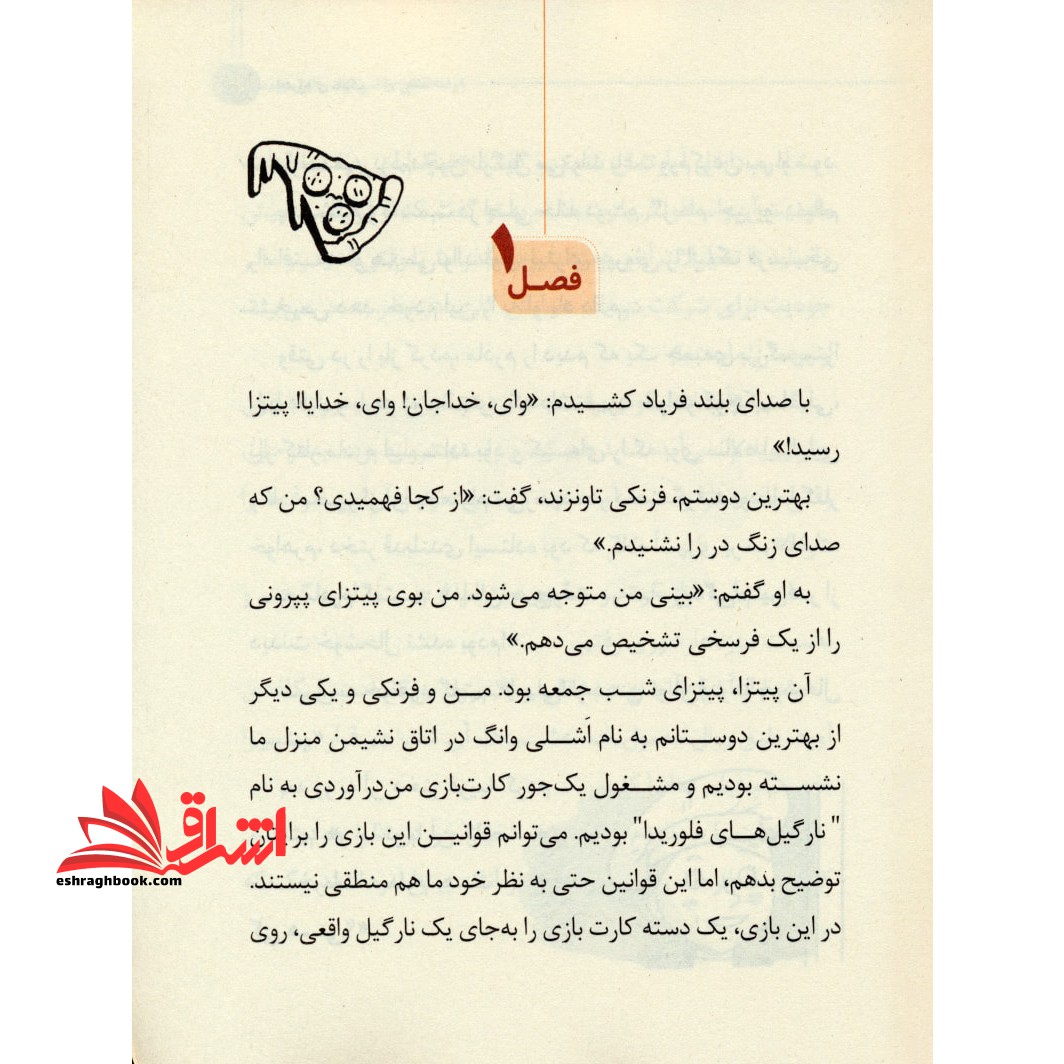 فصل
۱
با صدای بلند فریاد کشیدم: «وای، خداجان! وای، خدایا! پیتزا
رسید!»
بهترین دوستم، فرنکی تاونزند، گفت: «از کجا فهمیدی؟ من که
صدای زنگ در را نشنیدم.»
به او گفتم: «بینی من متوجه می‌شود. من بوی پیتزای پپرونی
را از یک فرسخی تشخیص می‌دهم.»
آن پیتزا، پیتزای شب جمعه بود. من و فرنکی و یکی دیگر
از بهترین دوستانم به نام اَشلی وانگ در اتاق نشیمن منزل ما
نشسته بودیم و مشغول یک‌جور کارت‌بازی من‌درآوردی به نام
" نارگیل‌های فلوریدا" بودیم. می‌توانم قوانین این بازی را برایتان
توضیح بدهم، اما این قوانین حتی به نظر خود ما هم منطقی نیستند.
در این بازی، یک دسته کارت بازی را به‌جای یک نارگیل واقعی، روی
اشراق
eshraghbook.com